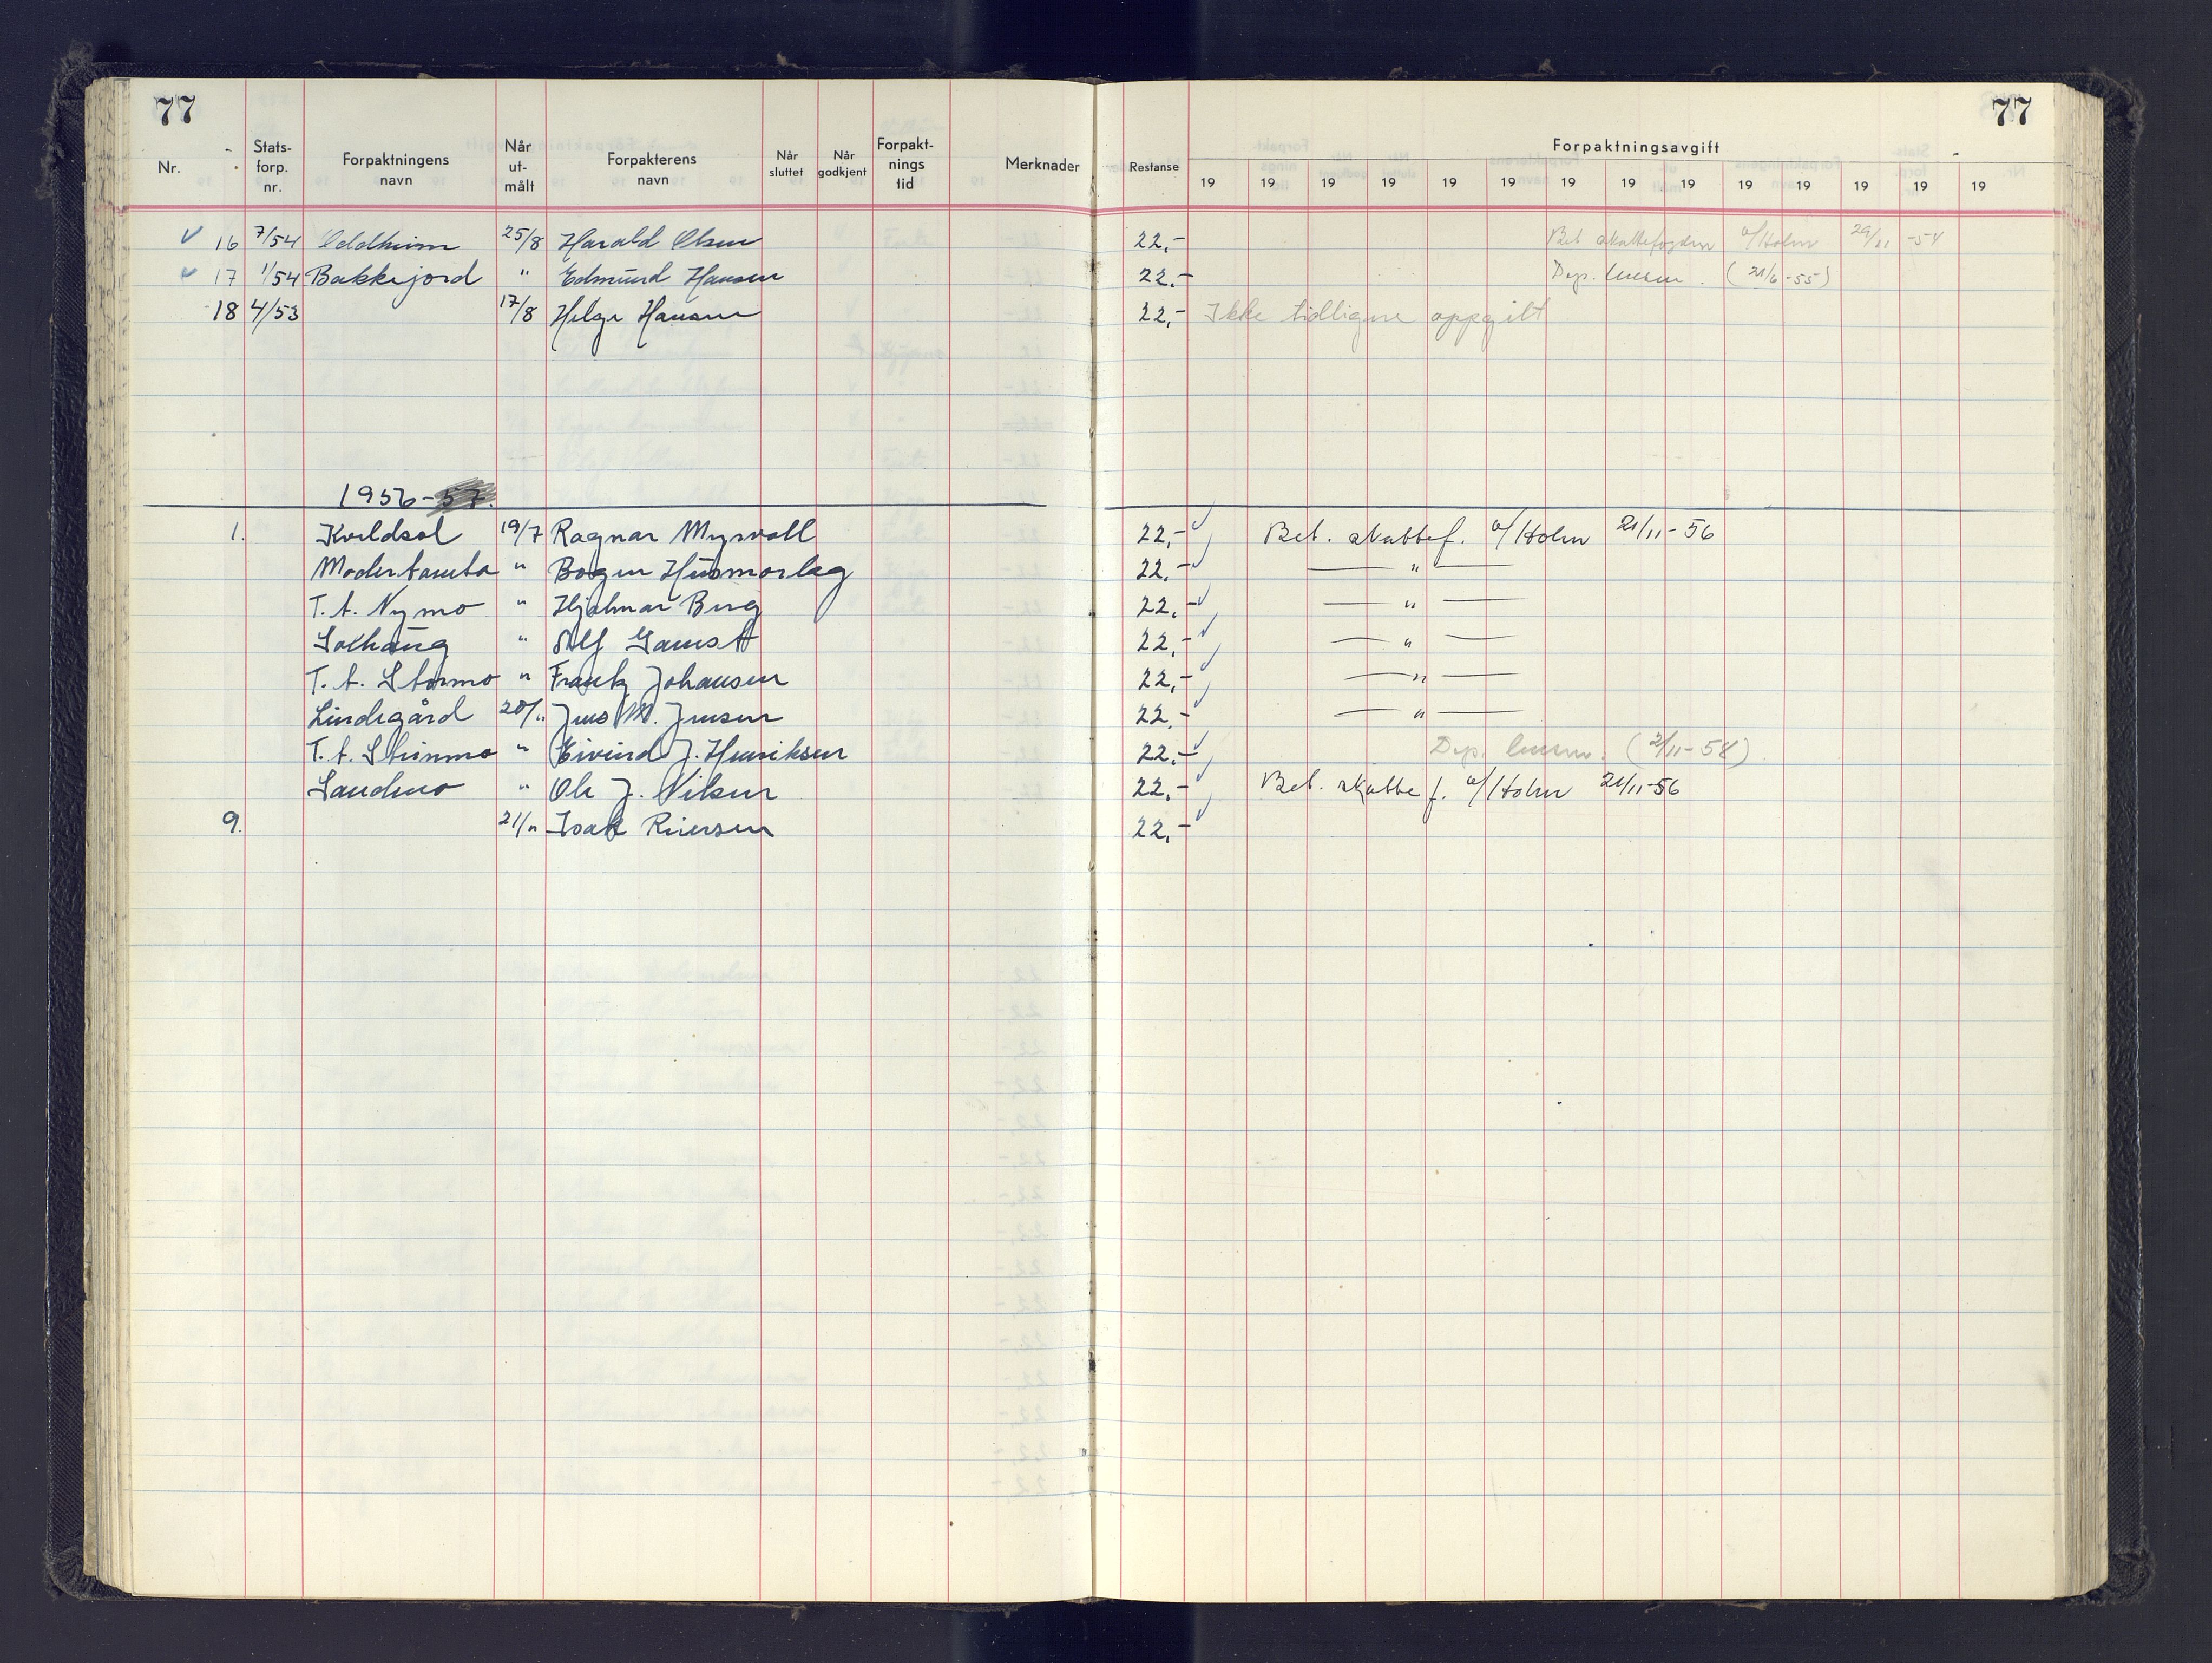 77 77
Nr. Stats-forp. nr. Forpaktningens navn Når ut-målt Forpakterens navn Når sluttet Når godkjent Forpakt-nings tid Merknader Restanse Forpaktningsavgift
19 19 19 19 19 19 19 19 19 19 19 19 19 19
✓ 16 7/54 Oddheim 25/8 Harald Olsen 22,- Bet skattefogden v/Holm 29/11 -54
✓ 17 1/54 Bakkejord " Edmund Hansen 22.- Dep. lensm. (21/6-55)
18 4/53 17/8 Helge Hansen 22,- Ikke tidligere oppgitt
1956-57.
1. Kveldsol 19/7 Ragnar Myrvoll 22,- ✓ Bet. skattef. v/Holm 21/11-56
Modertomta " Bogen Husmorlag 22,- ✓ — " —
T.t. Nymo " Hjalmar Berg 22,- ✓ — " —
Solhaug " Alf Gamst 22,- ✓ — " —
T.t. Stormo " Frantz Johansen 22,- ✓ — " —
Lindegård 20/" Jens M. Jensen 22,- ✓ — " —
T.t. Steinmo " Eivind J. Henriksen 22,- ✓ Dep. lensm. (2/11-58)
Sandmo " Ole J. Nilsen 22,- ✓ Bet. skattef. v/Holm 21/11-56
9. 21/" Isak Reiersen 22,- ✓